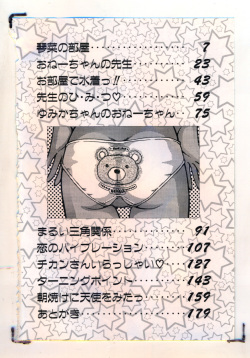 琴菜の部屋 7
おねーちゃんの先生 23
お部屋で水着っ!! 43
先生のひ・み・つ♡ 59
ゆみかちゃんのおねーちゃん 75
まるい三角関係 91
恋のバイブレーション 107
チカンさんいらっしゃい♡ 127
ターニングポイント 143
朝焼けに天使をみたっ 159
あとがき 179